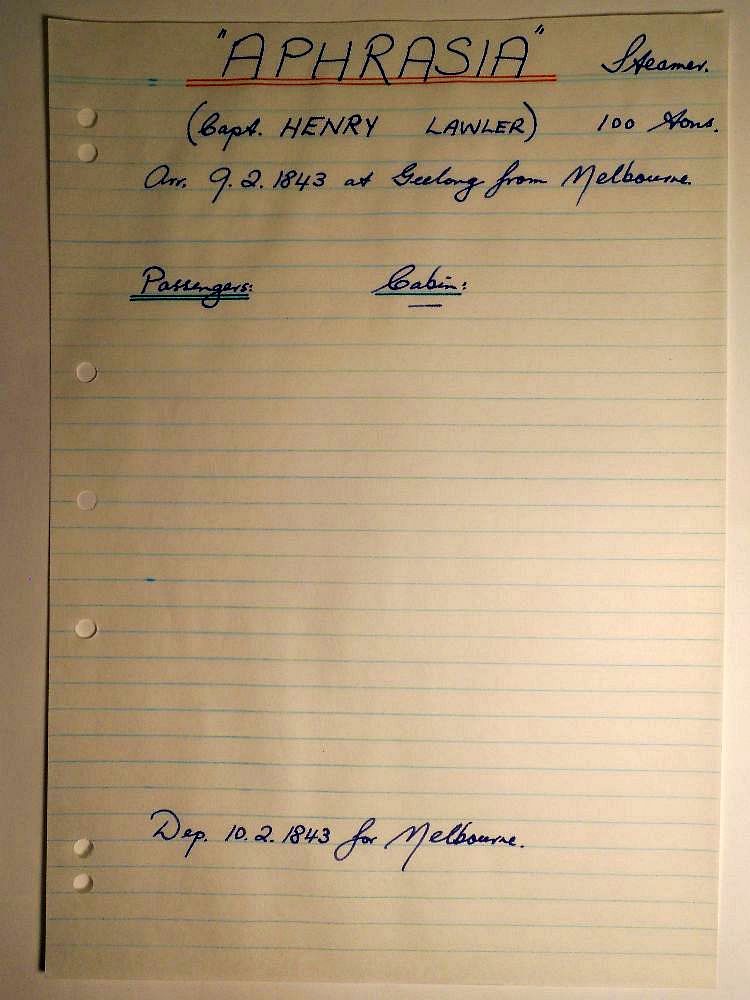 "APHRASIA" Steamer.
(Capt. HENRY LAWLER) 100 Tons.
Arr. 9.2.1843 at Geelong from Melbourne.
Passengers: Cabin:
Dep. 10.2.1843 for Melbourne.